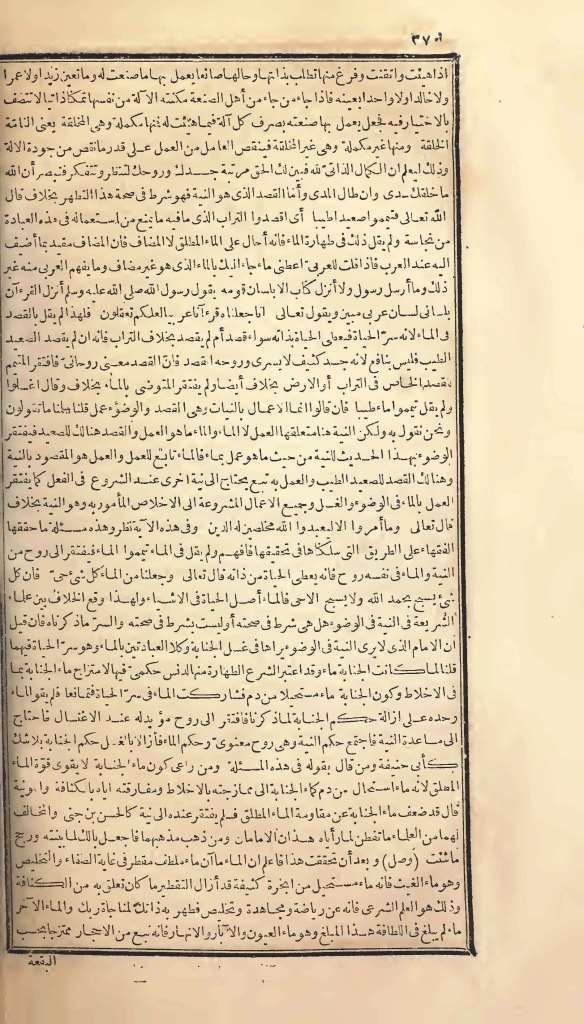 ٣٧٠
اذا هيئت واتقنت وفرغ منها تطلب بذاتها وحالها صانعا يعمل بها ما صنعت له وما تعين زيد اولا عمرا
ولا خالدا ولا واحدا بعينه فاذا جاء من جاء من أهل الصنعة مكنته الآلة من نفسها تمكنا ذاتيا لا تتصف
بالاختيار فيه فجعل يعمل بها صنعته بصرف كل آلة فيما هيئت له فمنها مكملة وهى المخلقة يعنى التامة
الخلقة ومنها غير مكملة وهى غير المخلقة فينقص العامل من العمل على قدر ما نقص من جودة الآلة
وذلك ليعلم ان الكمال الذاتى لله فبين لك الحق مرتبة جسدك وروحك لتنظر وتتفكر فتبصر أن الله
ما خلقك سدى وان طال المدى وأما القصد الذى هو النية فهو شرط فى صحة هذا التطهر بخلاف قال
الله تعالى فتيمموا صعيدا طيبا أى اقصدوا التراب الذى ما فيه ما يمنع من استعماله فى هذه العبادة
من نجاسة ولم يقل ذلك فى طهارة الماء فانه أحال على الماء المطلق لا المضاف فان المضاف مقيد بما أضيف
اليه عند العرب فاذا قلت للعربى أعطنى ماء جاء اليك بالماء الذى هو غير مضاف وما يفهم العربى منه غير
ذلك وما أرسل رسول ولا أنزل كتاب الا بلسان قومه يقول رسول الله صلى الله عليه وسلم أنزل القرءآن
بلسانى لسان عربى مبين ويقول تعالى انا جعلناه قرءآنا عربيا لعلكم تعقلون فلهذا لم يقل بالقصد
فى الماء لانه سر الحياة فيعطى الحياة بذاته سواء قصد أم لم يقصد بخلاف التراب فانه ان لم يقصد الصعيد
الطيب فليس بنافع لانه جسد كثيف لا يسرى وروحه القصد فان القصد معنى روحانى فافتقر المتيمم
للقصد الخاص فى التراب أو الارض بخلاف أيضا ولم يفتقر المتوضى بالماء بخلاف وقال اغسلوا
ولم يقل تيمموا ماء طيبا فان قالوا انما الاعمال بالنيات وهى القصد والوضوء عمل قلنا سلمنا ما تقولون
ونحن نقول به ولكن النية هنا متعلقها العمل لا الماء والماء ما هو العمل والقصد هنالك للصعيد فيفتقر
الوضوء بهذا الحديث للنية من حيث ما هو عمل بماء فالماء تابع للعمل والعمل هو المقصود بالنية
وهنالك القصد للصعيد الطيب والعمل به تبع يحتاج الى نية اخرى عند الشروع فى الفعل كما يفتقر
العمل بالماء فى الوضوء والغسل وجميع الاعمال المشروعة الى الاخلاص المأمور به وهو النية بخلاف
قال تعالى وما أمروا الا ليعبدوا الله مخلصين له الدين وفى هذه الآية نظر وهذه مسئلة ما حققها
الفقهاء على الطريق التى سلكناها فى تحقيقها فافهم ولم يقل فى الماء تيمموا الماء فيفتقر الى روح من
النية والماء فى نفسه روح فانه يعطى الحياة من ذاته قال تعالى وجعلنا من الماء كل شئ حىّ فان كل
شئ يسبح بحمد الله ولا يسبح الا حى فالماء أصل الحياة فى الاشياء ولهذا وقع الخلاف بين علماء
الشريعة فى النية فى الوضوء هل هى شرط فى صحته أو ليست بشرط فى صحته والسر ما ذكرناه فان قيل
ان الامام الذى لا يرى النية فى الوضوء يراها فى غسل الجنابة وكلا العبادتين بالماء وهو سر الحياة فيهما
قلنا لما كانت الجنابة ماء وقد اعتبر الشرع الطهارة منها لدنس حكمى فيها لامتزاج ماء الجنابة بما
فى الاخلاط وكون الجنابة ماء مستحيلا من دم فشاركت الماء فى سر الحياة فتمانعا فلم يقو الماء
وحده على ازالة حكم الجنابة لما ذكرنا فافتقر الى روح مؤيد له عند الاغتسال فاحتاج
الى مساعدة النية فاجتمع حكم النية وهى روح معنوى وحكم الماء فأزالا بالغسل حكم الجنابة بلا شك
كأبى حنيفة ومن قال بقوله فى هذه المسئلة ومن راعى كون ماء الجنابة لا يقوى قوّة الماء
المطلق لانه ماء استحال من دم كماء الجنابة الى ممازجته بالاخلاط ومفارقته اياه بالكثافة واللونية
قال قد ضعف ماء الجنابة عن مقاومة الماء المطلق فلم يفتقر عنده الى نية كالحسن بن حى والمخالف
لهما من العلماء ما تفطن لما رأياه هذان الامامان ومن ذهب مذهبهما فاجعل بالك لما بينته ورجح
ماشئت (وصل) وبعد أن تحققت هذا فاعلم ان الماء ماآن ماء ملطف مقطر فى غاية الصفاء والتخليص
وهو ماء الغيث فانه ماء مستحيل من ابخرة كثيفة قد أزال التقطير ما كان تعلق به من الكثافة
وذلك هو العلم الشرعى فانه عن رياضة ومجاهدة وتخلص فطهر به ذاتك لمناجاة ربك والماء الآخر
ماء لم يبلغ فى اللطافة هذا المبلغ وهو ماء العيون والآبار والانهار فانه نبع من الاحجار ممتزجا بحسب
البقعة